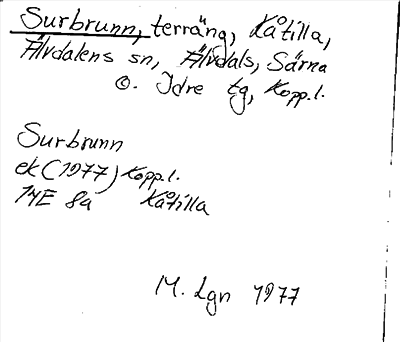 Surbrunn, terräng, Kåtilla,
Älvdalens sn, Älvdals, Särna
o. Idre tg, Kopp.l.
Surbrunn
ek (1977) Kopp.l.
14E 8a Kåtilla
M. Lgn 1977